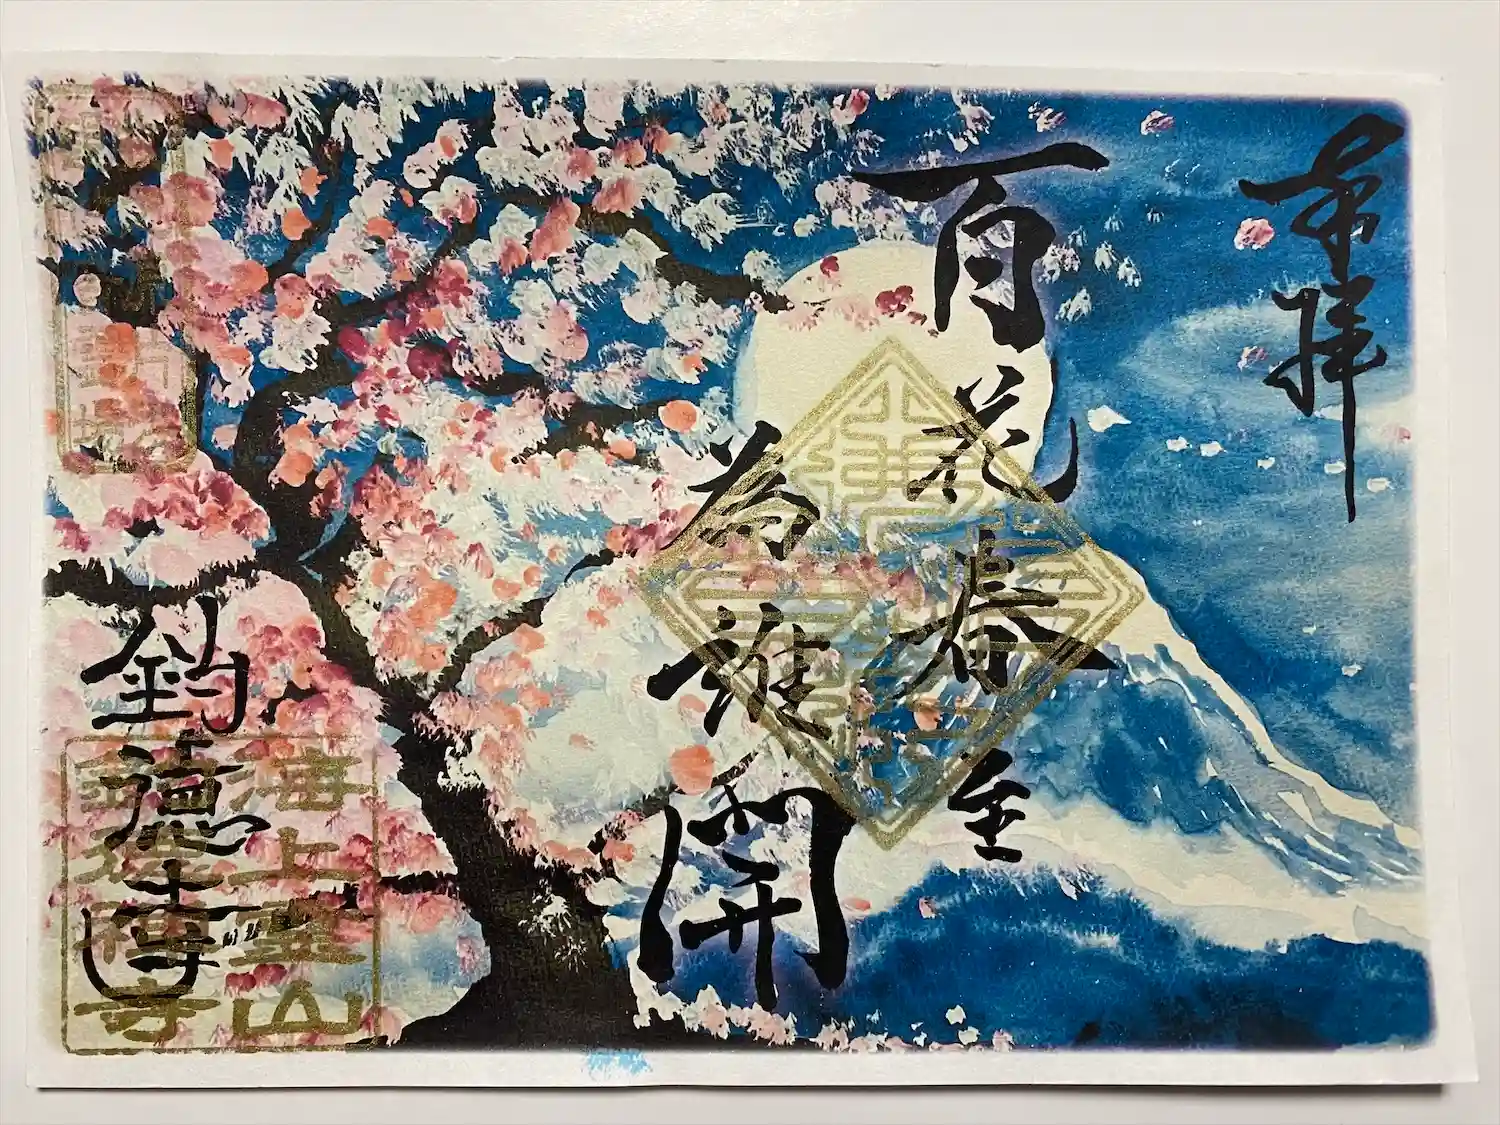 奉拝
百花春至
為誰開
釣徳寺
海上霊山
釣徳禅寺